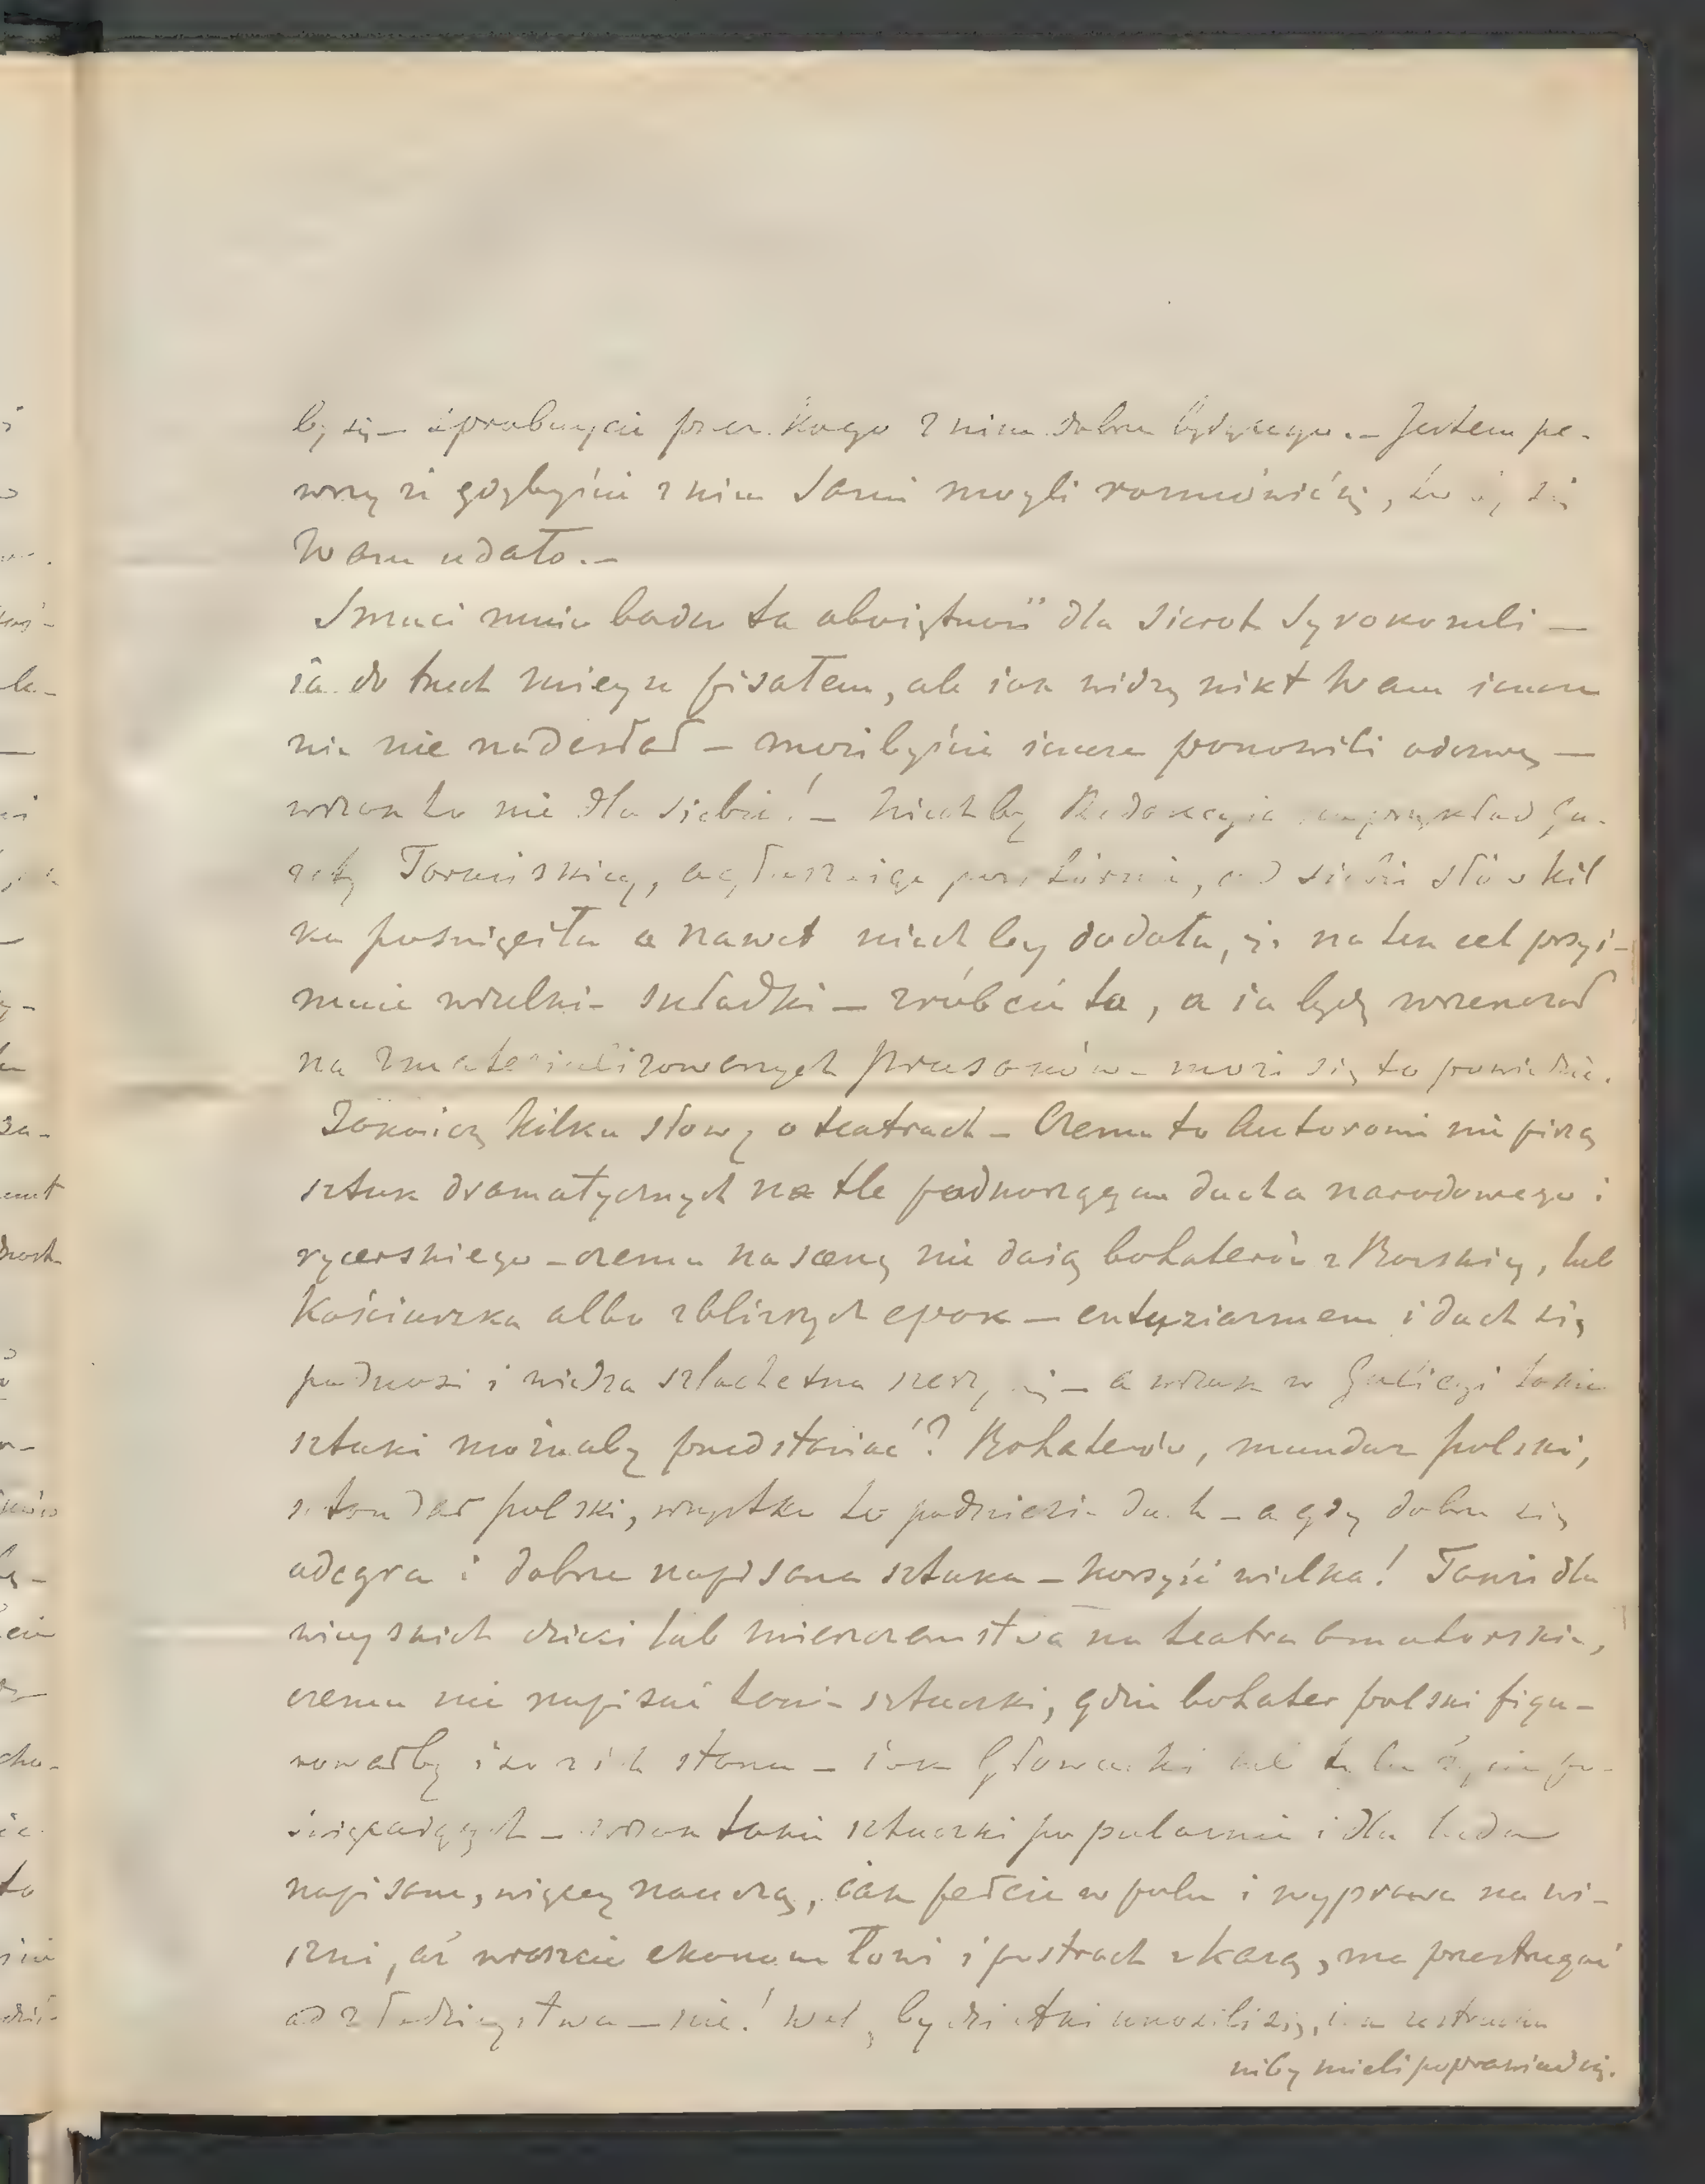 by się — sprobuycie przez kogo z nim dobrze będącego. — Jestem pe-
wny że gdybyście z nim sami mogli rozmówić się, że by się
Wam udało. —
Smuci mnie bardzo ta obojętność dla sierot Syrokomli —
ia do trzech mieysc pisałem, ale iak widzę nikt Wam ieszcze
nic nie nadesłał — możebyście ieszcze ponowili odezwę —
wszak to nie dla siebie! — Niechby Redakcyia naprzykład Ga-
zety Toruńskiey, ogłaszaiąc powtórnie, od siebie słów kil
ka poświęciła a nawet niechby dodała, iż na ten cel przyi-
muie wszelkie składki — zróbcie to, a ia będę wrzeszczał
na zmaterializowanych Prusaków — może się to powiedzie.
Zakończę kilku słowy o teatrach — Czemu to Autorowie nie piszą
sztuk dramatycznych na tle podnoszącym ducha narodowego i
rycerskiego — czemu na scenę nie daią bohaterów z Barskiey, lub
Kościuszka albo z bliższych epok — entuziazmem i duch się
podnosi i wiedza szlachetna szerzy się — a wszak w Galicyi takie
sztuki możnaby przedstawiać? Bohaterów, mundur polski,
sztandar polski, wszystko to podniesie ducha — a gdy dobrze się
odegra i dobrze napisana sztuka — korzyść wielka! Także dla
wieyskich dzieci lub mieszczaństwa na teatra amatorskie,
czemu nie napisać takie sztuczki, gdzie bohater polski figu-
rowałby i to z ich stanu — iak Głowacki lub tylu życie po-
święcaiących — wszak takie sztuczki popularnie i dla ludu
napisane, więcey nauczą, iak pełcie w polu i wyprawa na wi-
sznie, aż wreszcie ekonom łowi i postrach z karą, ma przestrzegać
od złodzieystwa — nie! Wolę, by dziatki unosili się, iak ze strachu
niby mieli poprawiać się.